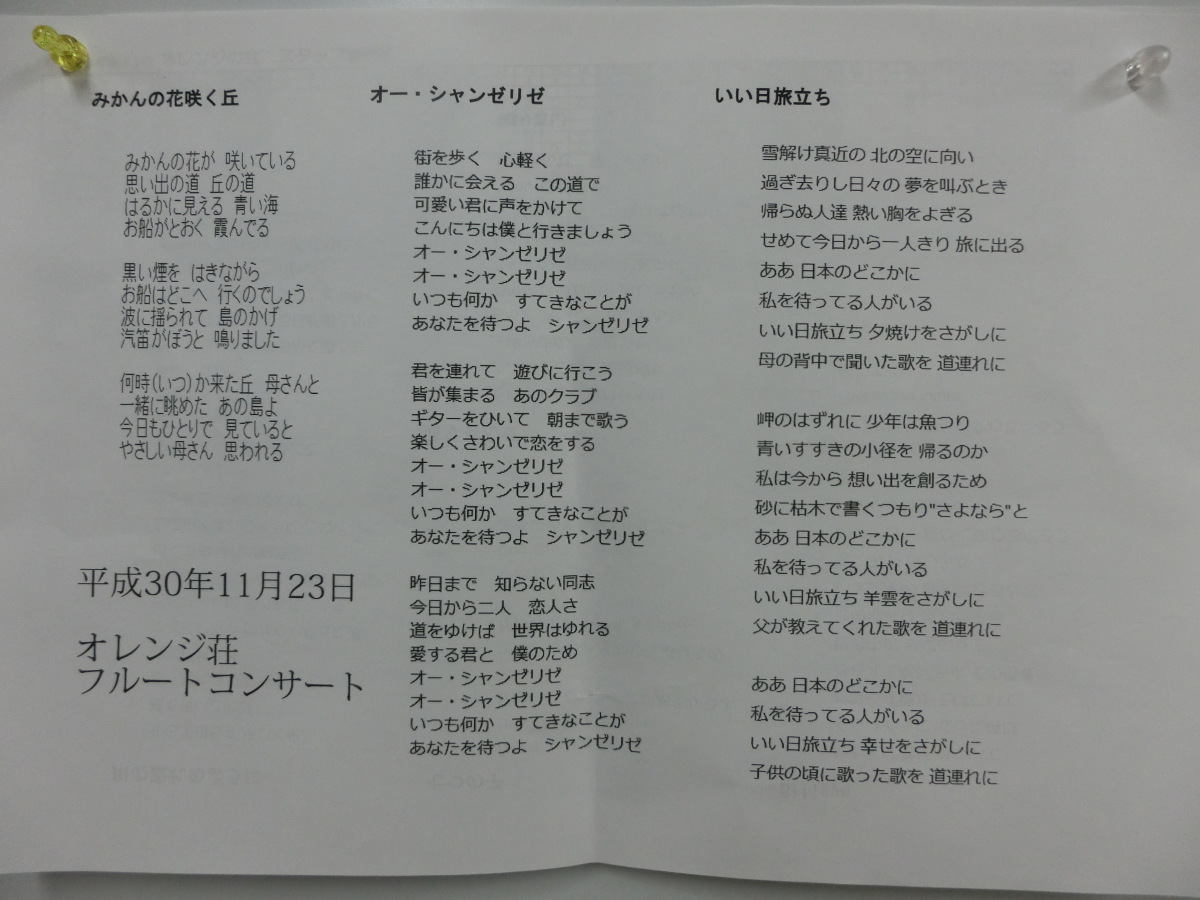 みかんの花咲く丘
みかんの花が 咲いている
思い出の道 丘の道
はるかに見える 青い海
お船がとおく 霞んでる
黒い煙を はきながら
お船はどこへ 行くのでしょう
波に揺られて 島のかげ
汽笛がぼうと 鳴りました
何時(いつ)か来た丘 母さんと
一緒に眺めた あの島よ
今日もひとりで 見ていると
やさしい母さん 思われる
平成30年11月23日
オレンジ荘
フルートコンサート
オー・シャンゼリゼ
街を歩く 心軽く
誰かに会える この道で
可愛い君に声をかけて
こんにちは僕と行きましょう
オー・シャンゼリゼ
オー・シャンゼリゼ
いつも何か すてきなことが
あなたを待つよ シャンゼリゼ
君を連れて 遊びに行こう
皆が集まる あのクラブ
ギターをひいて 朝まで歌う
楽しくさわいで恋をする
オー・シャンゼリゼ
オー・シャンゼリゼ
いつも何か すてきなことが
あなたを待つよ シャンゼリゼ
昨日まで 知らない同志
今日から二人 恋人さ
道をゆけば 世界はゆれる
愛する君と 僕のため
オー・シャンゼリゼ
オー・シャンゼリゼ
いつも何か すてきなことが
あなたを待つよ シャンゼリゼ
いい日旅立ち
雪解け真近の 北の空に向い
過ぎ去りし日々の 夢を叫ぶとき
帰らぬ人達 熱い胸をよぎる
せめて今日から一人きり 旅に出る
ああ 日本のどこかに
私を待ってる人がいる
いい日旅立ち 夕焼けをさがしに
母の背中で聞いた歌を 道連れに
岬のはずれに 少年は魚つり
青いすすきの小径を 帰るのか
私は今から 想い出を創るため
砂に枯木で書くつもり"さよなら"と
ああ 日本のどこかに
私を待ってる人がいる
いい日旅立ち 羊雲をさがしに
父が教えてくれた歌を 道連れに
ああ 日本のどこかに
私を待ってる人がいる
いい日旅立ち 幸せをさがしに
子供の頃に歌った歌を 道連れに